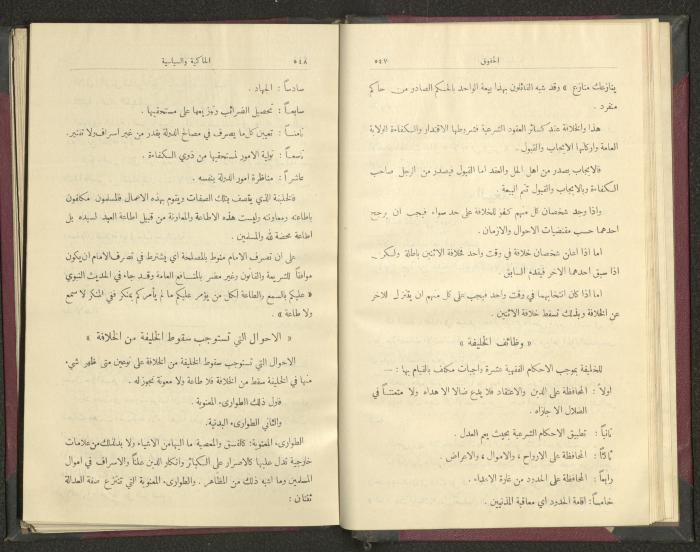 الحقوق ٥٤٧
ينازعك منازع » وقد شبه القائلون بهذا بيعة الواحد بالحكم الصادر من حاكم
منفرد .
هذا والخلافة عقد كسائر العقود الشرعية فشروطها الاقتدار والكفاءة الولاية
العامة واركانها الايجاب والقبول .
فالايجاب يصدر من اهل الحل والعقد اما القبول فيصدر من الرجل صاحب
الكفاءة وبالايجاب والقبول تتم البيعة .
واذا وجد شخصان كل منهم كفؤ للخلافة على حد سواء فيجب ان يرجح
احدهما حسب مقتضيات الاحوال والازمان .
اما اذا اعلن شخصان خلافة في وقت واحد فخلافة الاثنين باطلة ولكن
اذا سبق احدهما الاخر فيقدم السابق
اما اذا كان انتخابهما في وقت واحد فيجب على كل منهم ان يتنازل للاخر
عن الخلافة وبذلك تسقط خلافة الاثنين .
« وظائف الخليفة »
للخليفة بموجب الاحكام الفقهية عشرة واجبات مكلف بالقيام بها : —
اولاً : المحافظة على الدين والاعتقاد فلا يدع ضالا الا هداه ولا متعنتاً في
الضلال الا جازاه .
ثانياً : تطبيق الاحكام الشرعية بحيث يعم العدل .
ثالثاً : المحافظة على الارواح ، والاموال ، والاعراض .
رابعاً : المحافظة على الحدود من غارة الاعداء .
خامساً : اقامة الحدود اي معاقبة المذنبين .
٥٤٨ الحاكمية والسياسية
سادساً : الجهاد .
سابعاً : تحصيل الضرائب وتوزيعها على مستحقيها .
ثامناً : تعيين كل ما يصرف في مصالح الدولة بقدر من غير اسراف ولا تقتير .
تاسعاً : تولية الامور لمستحقيها من ذوي الكفاءة .
عاشراً : مناظرة امور الدولة بنفسه .
فالخليفة الذي يتصف بتلك الصفات ويقوم بهذه الاعمال فالمسلمون مكلفون
باطاعته ومعاونته وليست هذه الاطاعة والمعاونة من قبيل اطاعة العبد لسيده بل
اطاعة محضة لله والمسلمين .
على ان تصرف الامام منوط بالمصلحة اي يشترط في تصرف الامام ان يكون
موافقاً للشريعة والقانون وغير مضر بالمنافع العامة وقد جاء في الحديث النبوي
« عليكم بالسمع والطاعة لكل من يؤمر عليكم ما لم يأمركم بمنكر ففي المنكر لا سمع
ولا طاعة » .
« الاحوال التي تستوجب سقوط الخليفة من الخلافة »
الاحوال التي تستوجب سقوط الخليفة من الخلافة على نوعين متى ظهر شيء
منها في الخليفة سقط من الخلافة فلا طاعة ولا معونة تجوز له .
فاول ذلك الطوارىء المعنوية .
والثاني الطوارىء البدنية .
الطوارىء المعنوية : كالفسق والمعصية بما اليها من الاشياء ولا بد لذلك من علامات
خارجية تدل عليها كالاصرار على السكائر وانكار الدين علناً والاسراف في اموال
المسلمين وما اشبه ذلك من المظاهر . والطوارىء المعنوية التي تنتزع صفة العدالة
ثنتان :